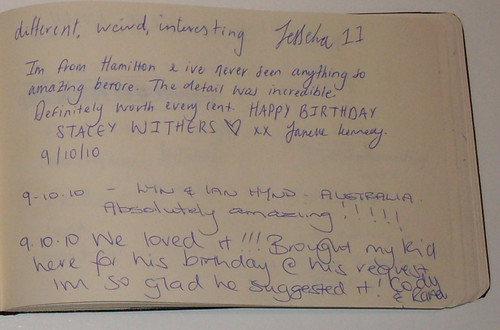 different, weird, interesting Jesscha 11
Im from Hamilton & ive never seen anything so
amazing berore. The detail was incredible
Definitely worth every cent. HAPPY BIRTHDAY
STACEY WITHERS ♡ xx Janelle Kennedy.
9/10/10
9-10.10 - LYN & IAN HYND - AUSTRALIA.
Absolutely amazing!!!!!
9.10.10 We loved it!!! Brought my kid
here for his birthday @ his request
im so glad he suggested it! Cody
&